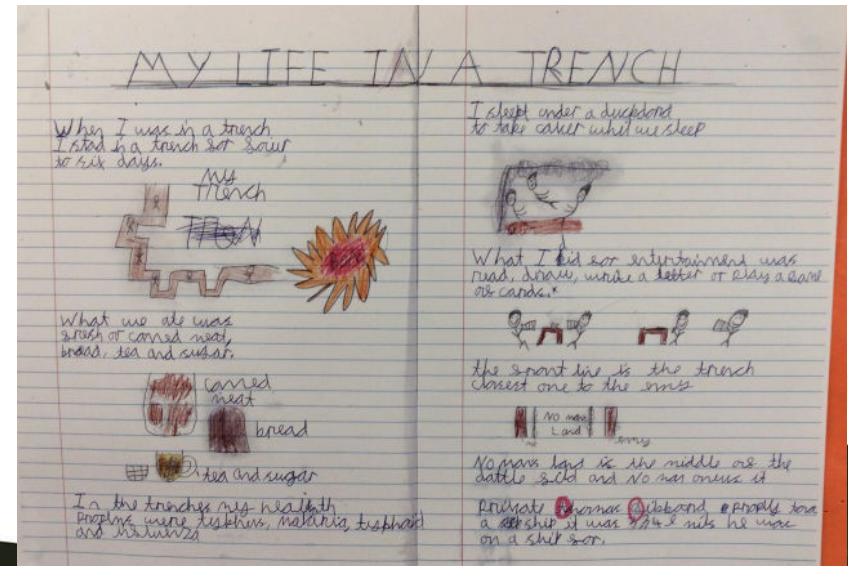 MY LIFE IN A TRENCH
When I was in a trench
I stad in a trench sor sour
to six days.
my
Trench
What we ate was
sresh or canned meat,
bread, tea and sugar.
canned
meat
bread
tea and sugar
In the trenches my
were malaria, typhaid
and
I sleept under a duckbord
to take caver whel we sleep
What I did sor entertainment was
read, draw, write a letter or play a game
os cards.*
the sront line is the trench
closest one to the
me
No man
Land
No mans land is the middle os the
and No man it
private thomas
a ship it was he was
on a ship sor.